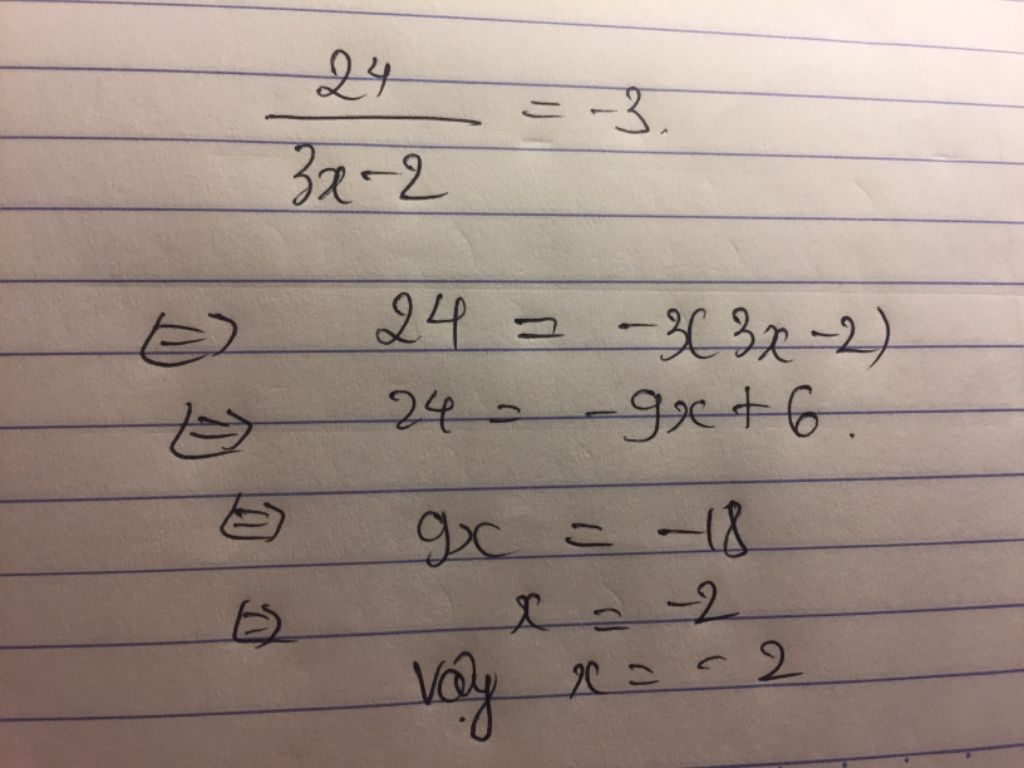 24
3x-2 = -3.
⇔ 24 = -3(3x-2)
⇔ 24 = -9x+6.
⇔ 9x = -18
⇔ x = -2
vậy x = -2